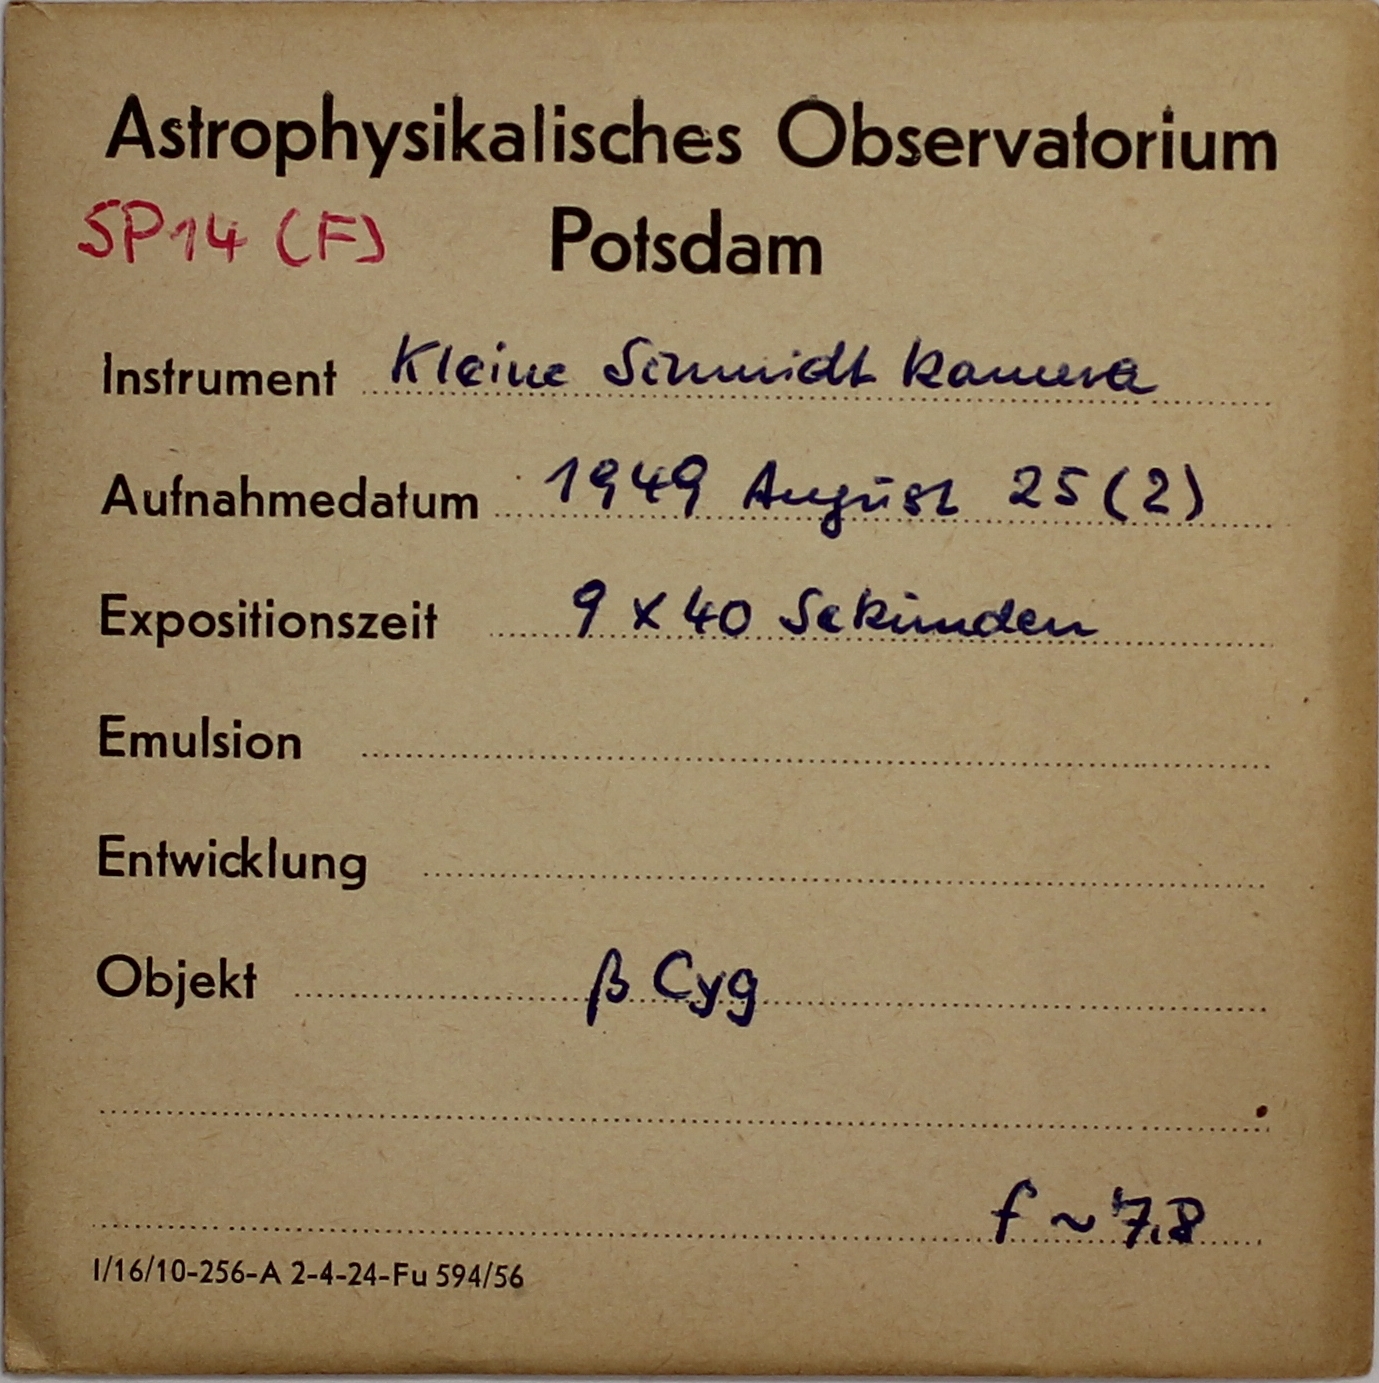 Astrophysikalisches Observatorium
SP14 (F) Potsdam
Instrument Kleine Schmidt Kamera
Aufnahmedatum 1949 August 25 (2)
Expositionszeit 9 x 40 Sekunden
Emulsion
Entwicklung
Objekt β Cyg
f ~ 7,8
I/16/10-256-A 2-4-24-Fu 594/56